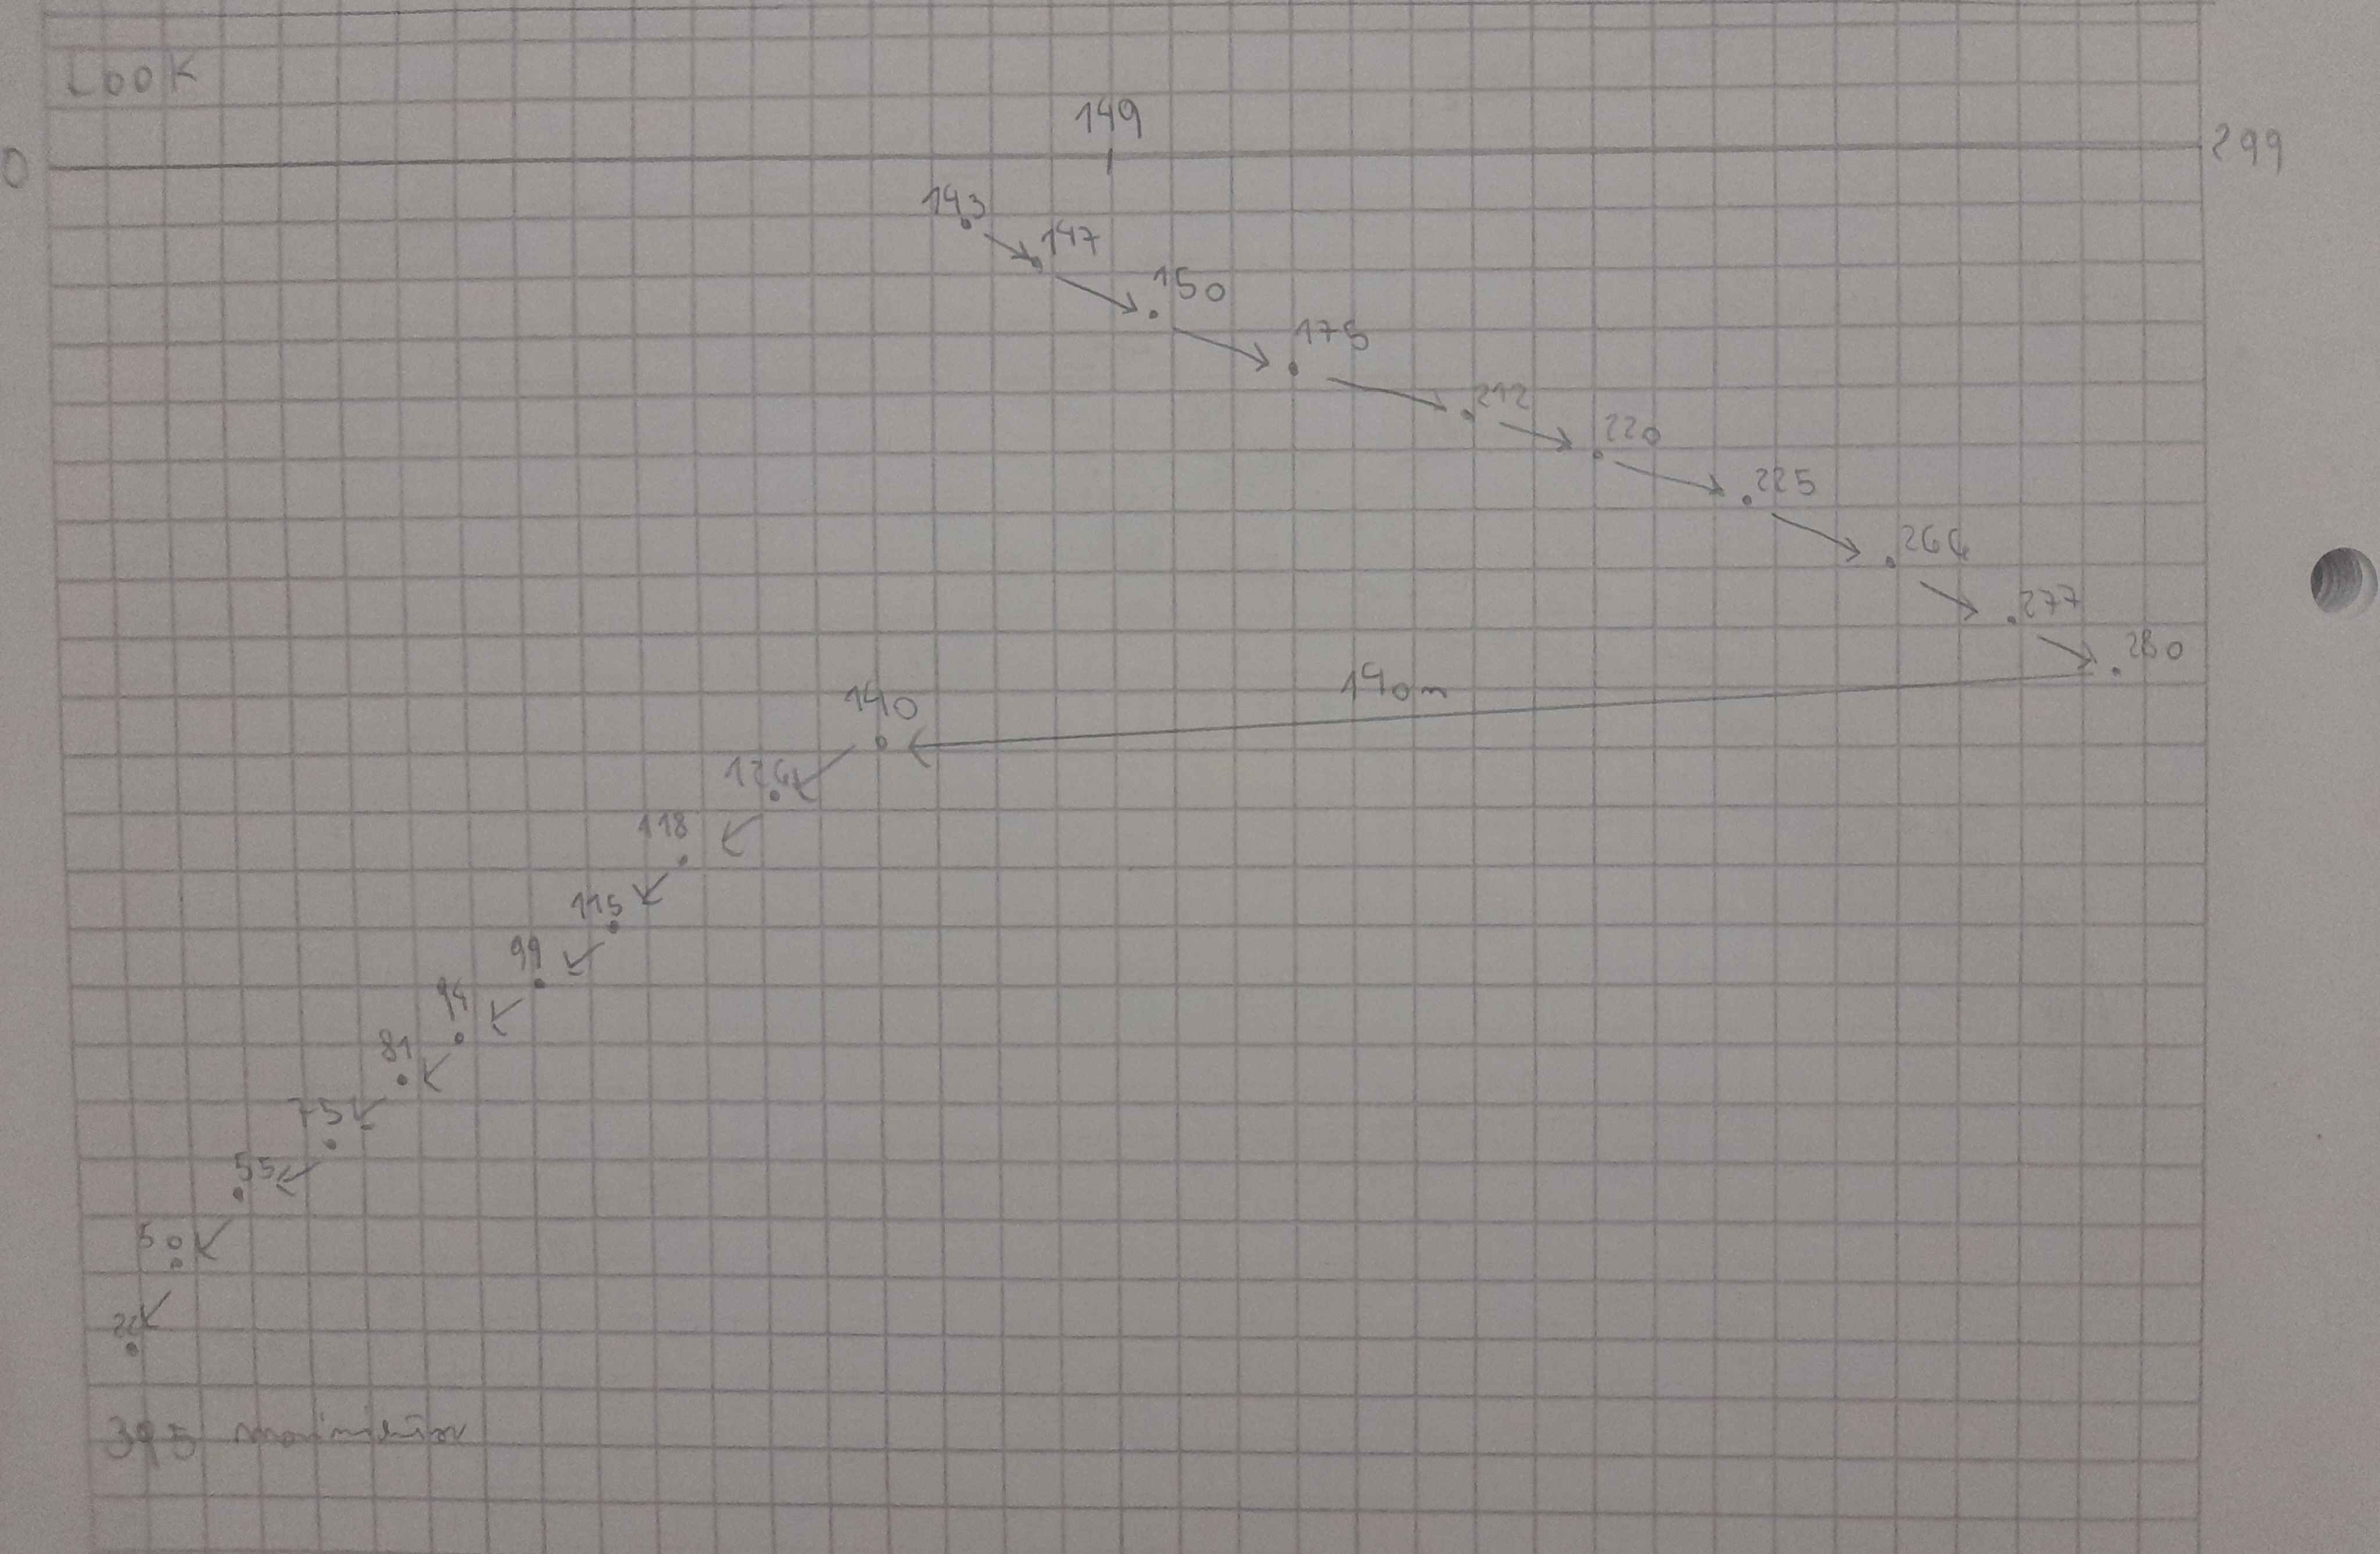 LOOK
149
0 299
143
147
150
175
212
220
225
266
277
280
140m
140
126
118
115
99
94
81
75
55
50
22
395